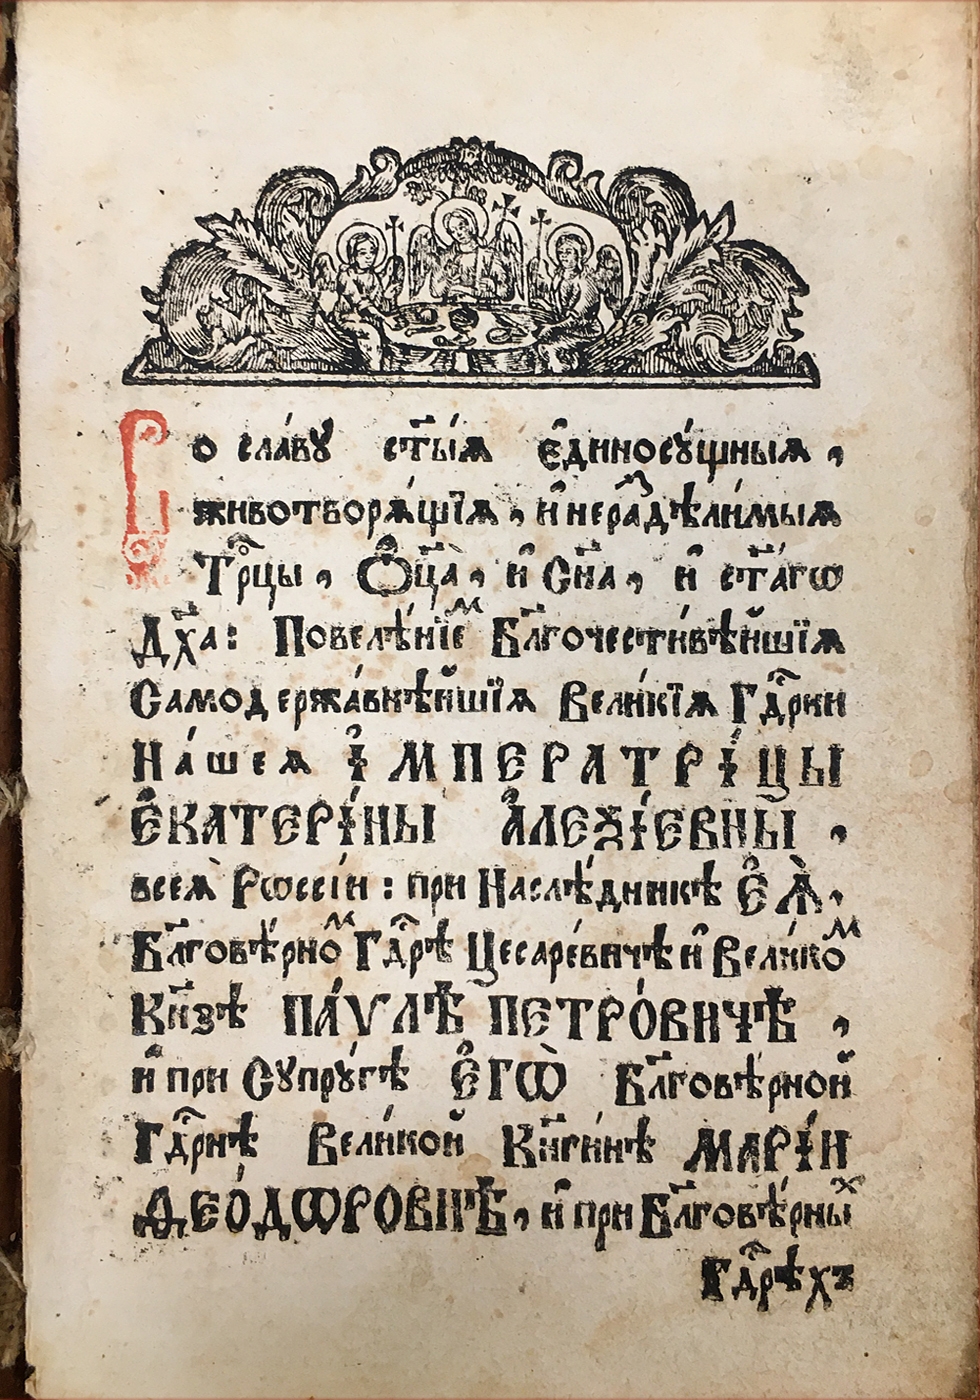 Во сла́вꙋ ст҃ы́ѧ є҆диносꙋ́щныѧ,
животворѧ́щїѧ, и҆ нераздѣли́мыѧ
Трⷪ҇цы, Ѻ҆ц҃а̀, и҆ Сн҃а, и҆ ст҃а́гѡ
Дх҃а: Повелѣ́нїеⷨ Бл҃гочести́вѣйшїѧ
Самодержа́внѣйшїѧ Вели́кїѧ Гдⷭ҇рни
На́шеѧ І҆МПЕРАТРІ́ЦЫ
Є҆КАТЕРІ́НЫ А҆ЛЕѮІ́ЕВНЫ,
всеѧ̀ Рѡссі́и: при Наслѣ́дникѣ Є҆Ѧ̀,
Бл҃говѣ́рноⷨ Гдⷭ҇рѣ Цесаре́вичѣ и҆ Вели́коⷨ
Кн҃зѣ ПА́ѴЛѢ ПЕТРО́ВИЧѢ,
и҆ при Сꙋпрꙋ́гѣ Є҆ГѠ̀ Бл҃говѣ́рной
Гдⷭ҇рнѣ Вели́кой Кн҃ги́нѣ МАРІ́И
ѲЕО́ДѠРОВНѢ, и҆ при Бл҃говѣ́рныⷯ
Гдⷭ҇рѣхъ